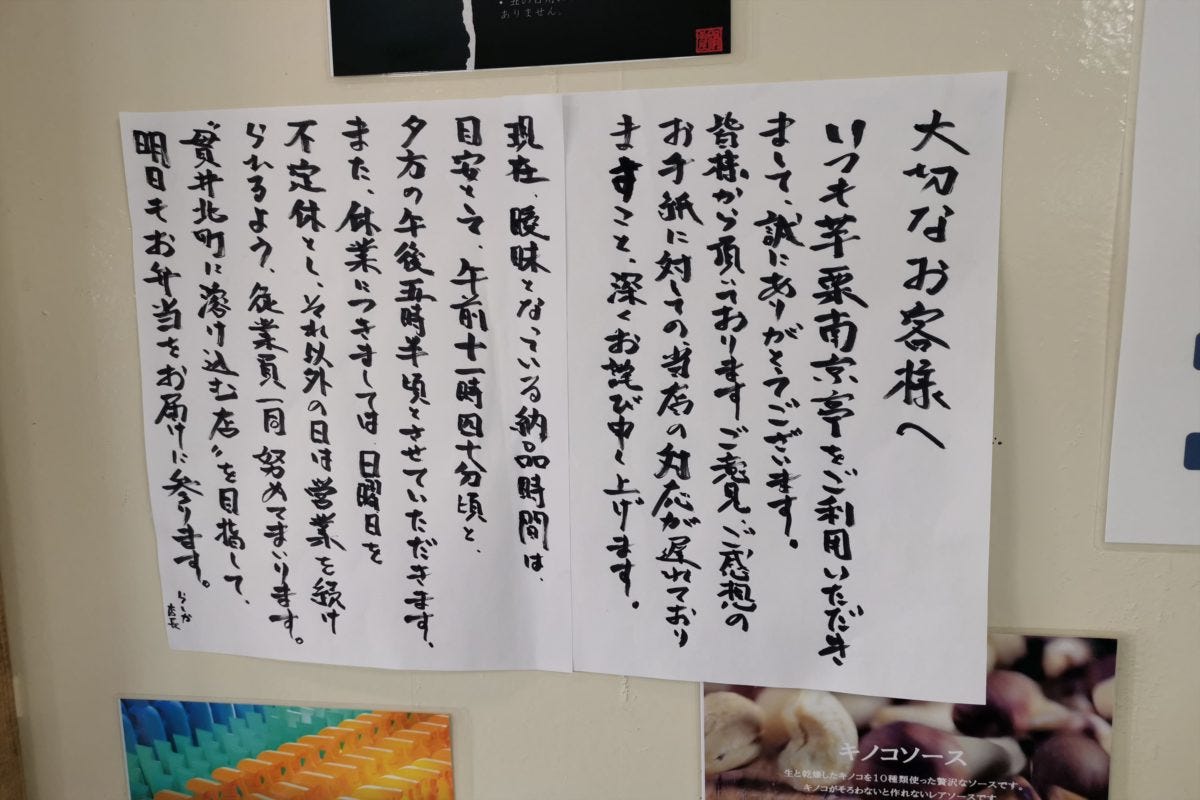 ありません。
大切なお客様へ
いつも芋栗南京亭をご利用いただき、
まして、誠にありがとうございます。
皆様から頂いております ご意見、ご感想の
お手紙に対しての、当店の対応が遅れており
ますこと、深くお詫び申し上げます。
現在、曖昧となっている納品時間は、
目安として、午前十一時四十分頃と、
夕方の午後五時半頃とさせていただきます、
また、休業につきましては、日曜日を
不定休とし、それ以外の日は営業を続け
られるよう、従業員一同 努めてまいります。
"貫井北町に溶け込む店"を目指して、
明日もお弁当をお届けに参ります。
店長
キノコソース
生と乾燥したキノコを10種類使った贅沢なソースです。
キノコがそろわないと作れないレアソースです